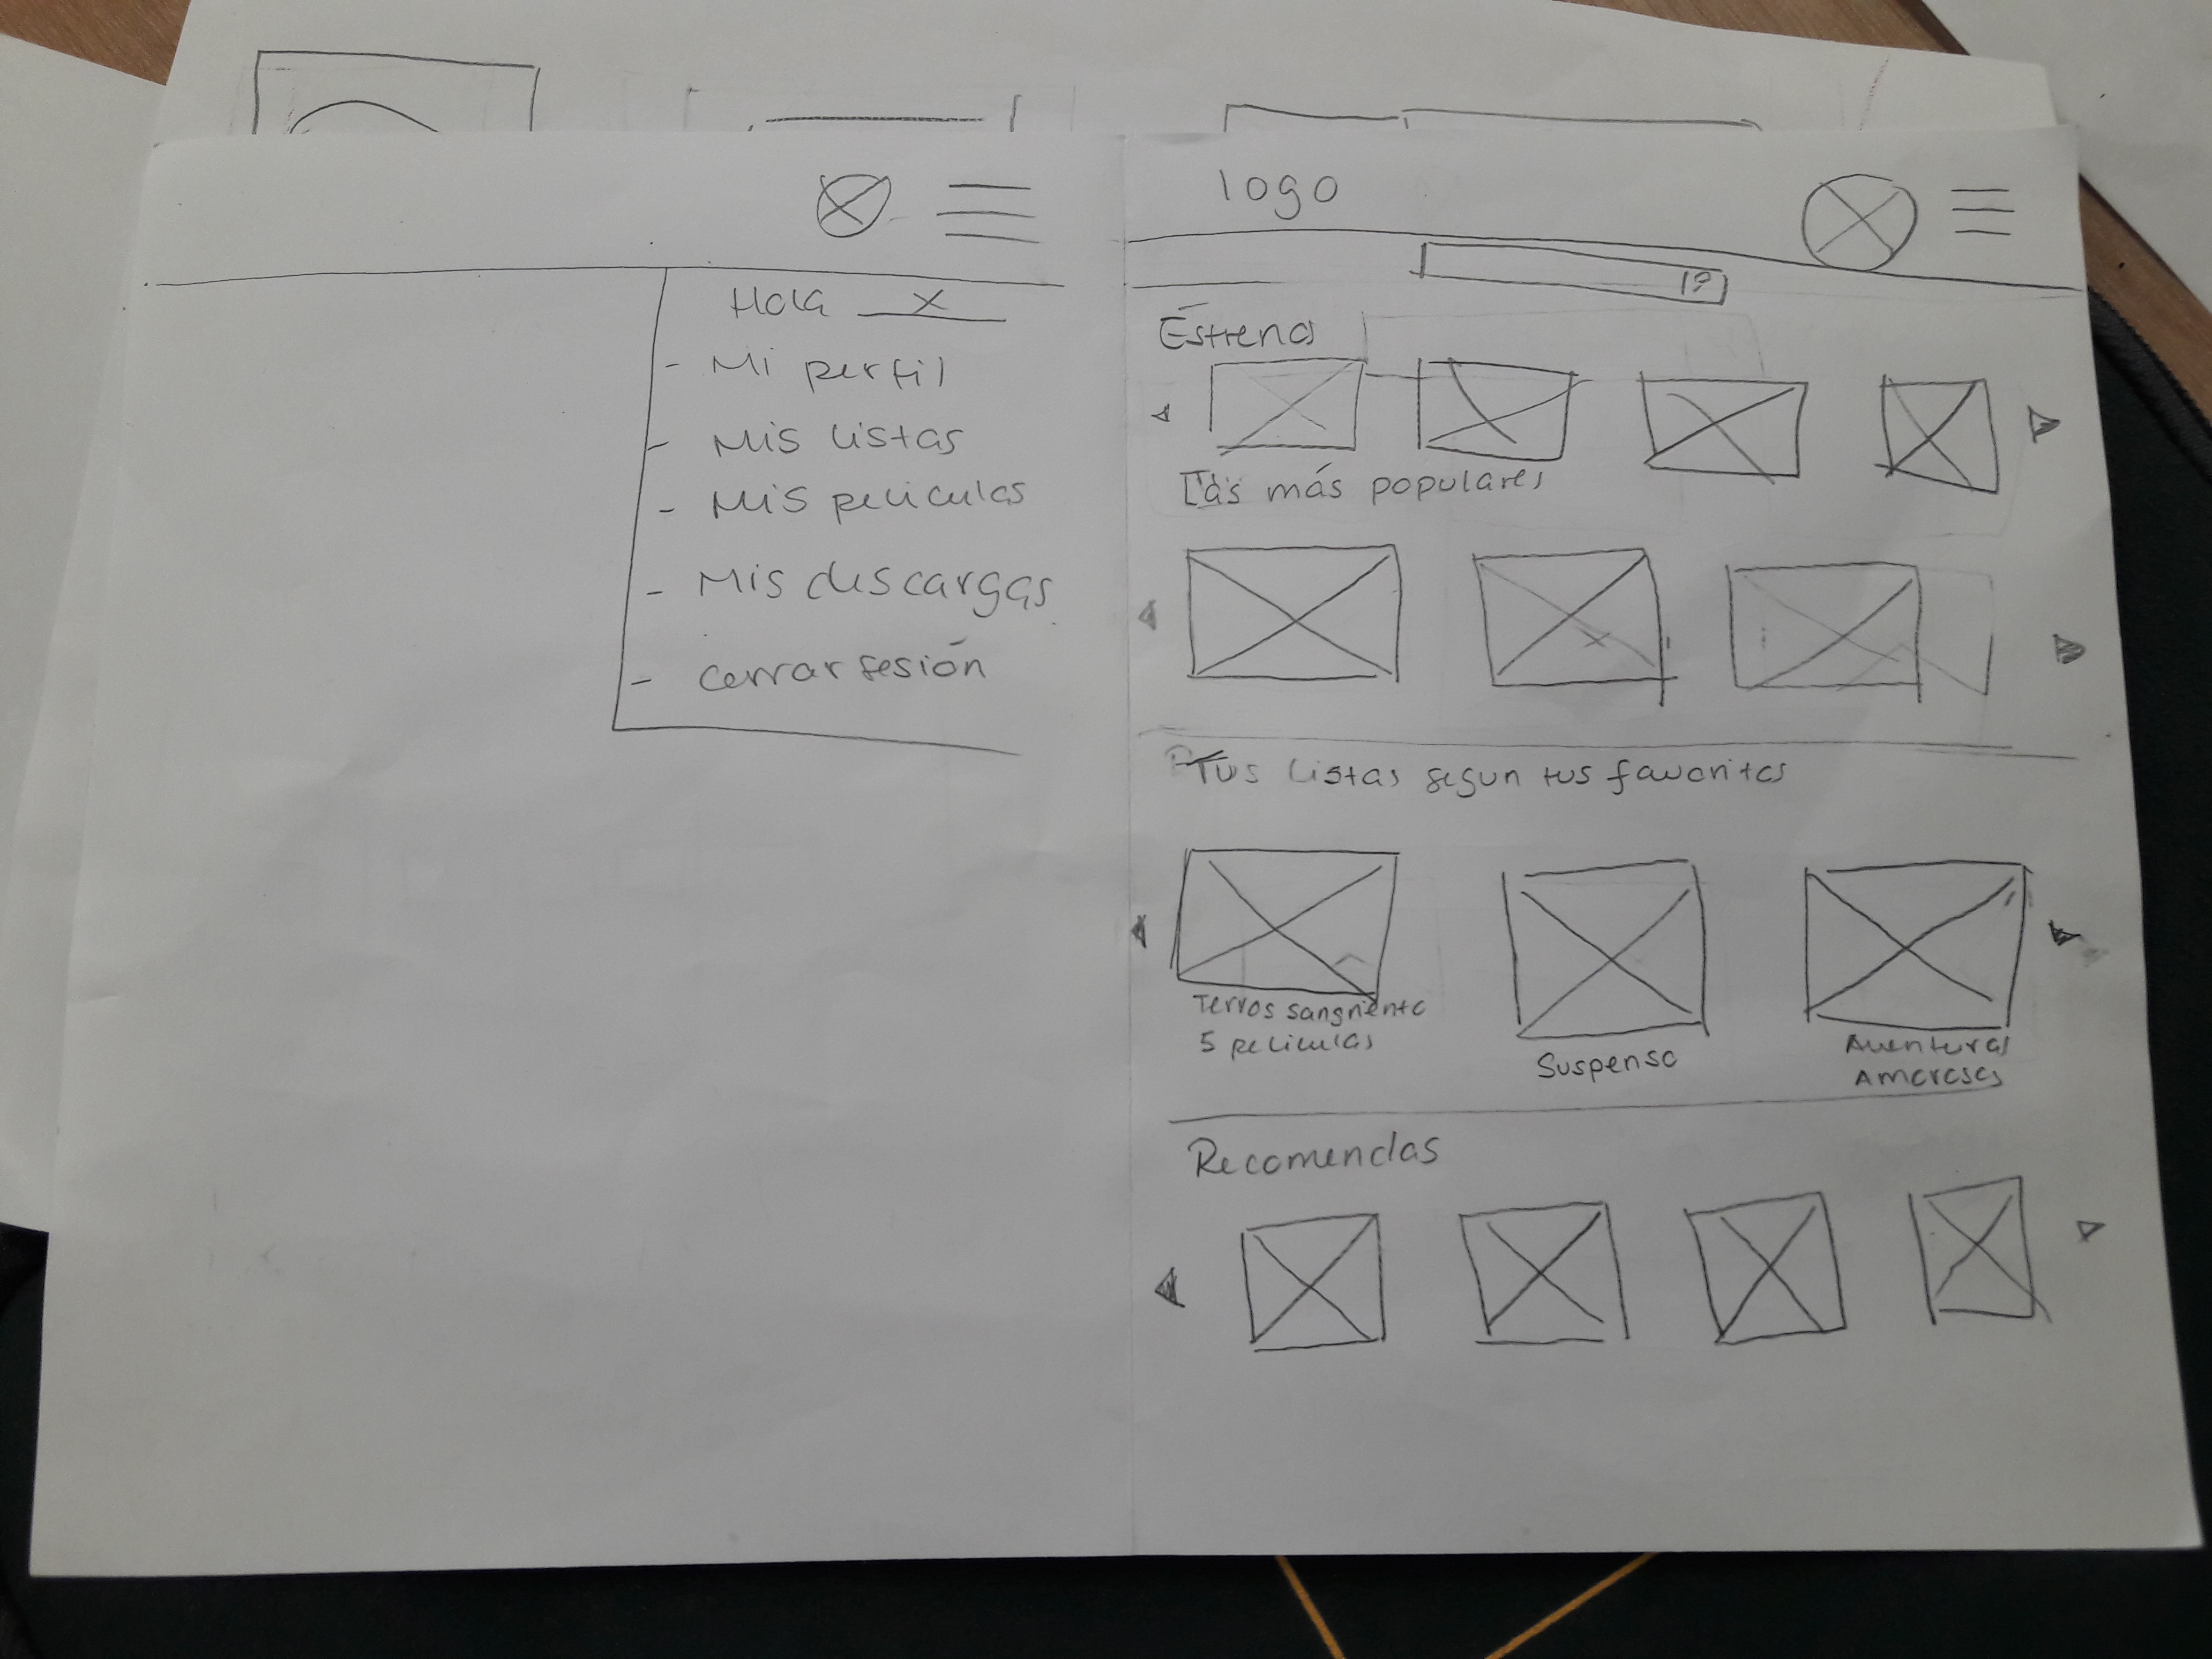 Hola x
- Mi perfil
- Mis listas
- Mis peliculas
- Mis descargas
- Cerrar sesión
logo
Estrend
Las más populares
Tus listas segun tus favoritos
Terros sangriento
5 peliculas
Suspenso
Aventuras
Amorosas
Recomendas